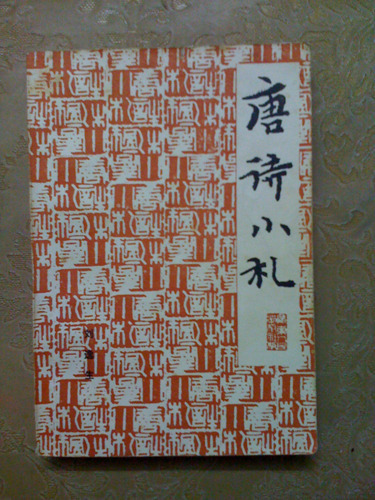 唐诗小札
刘逸生